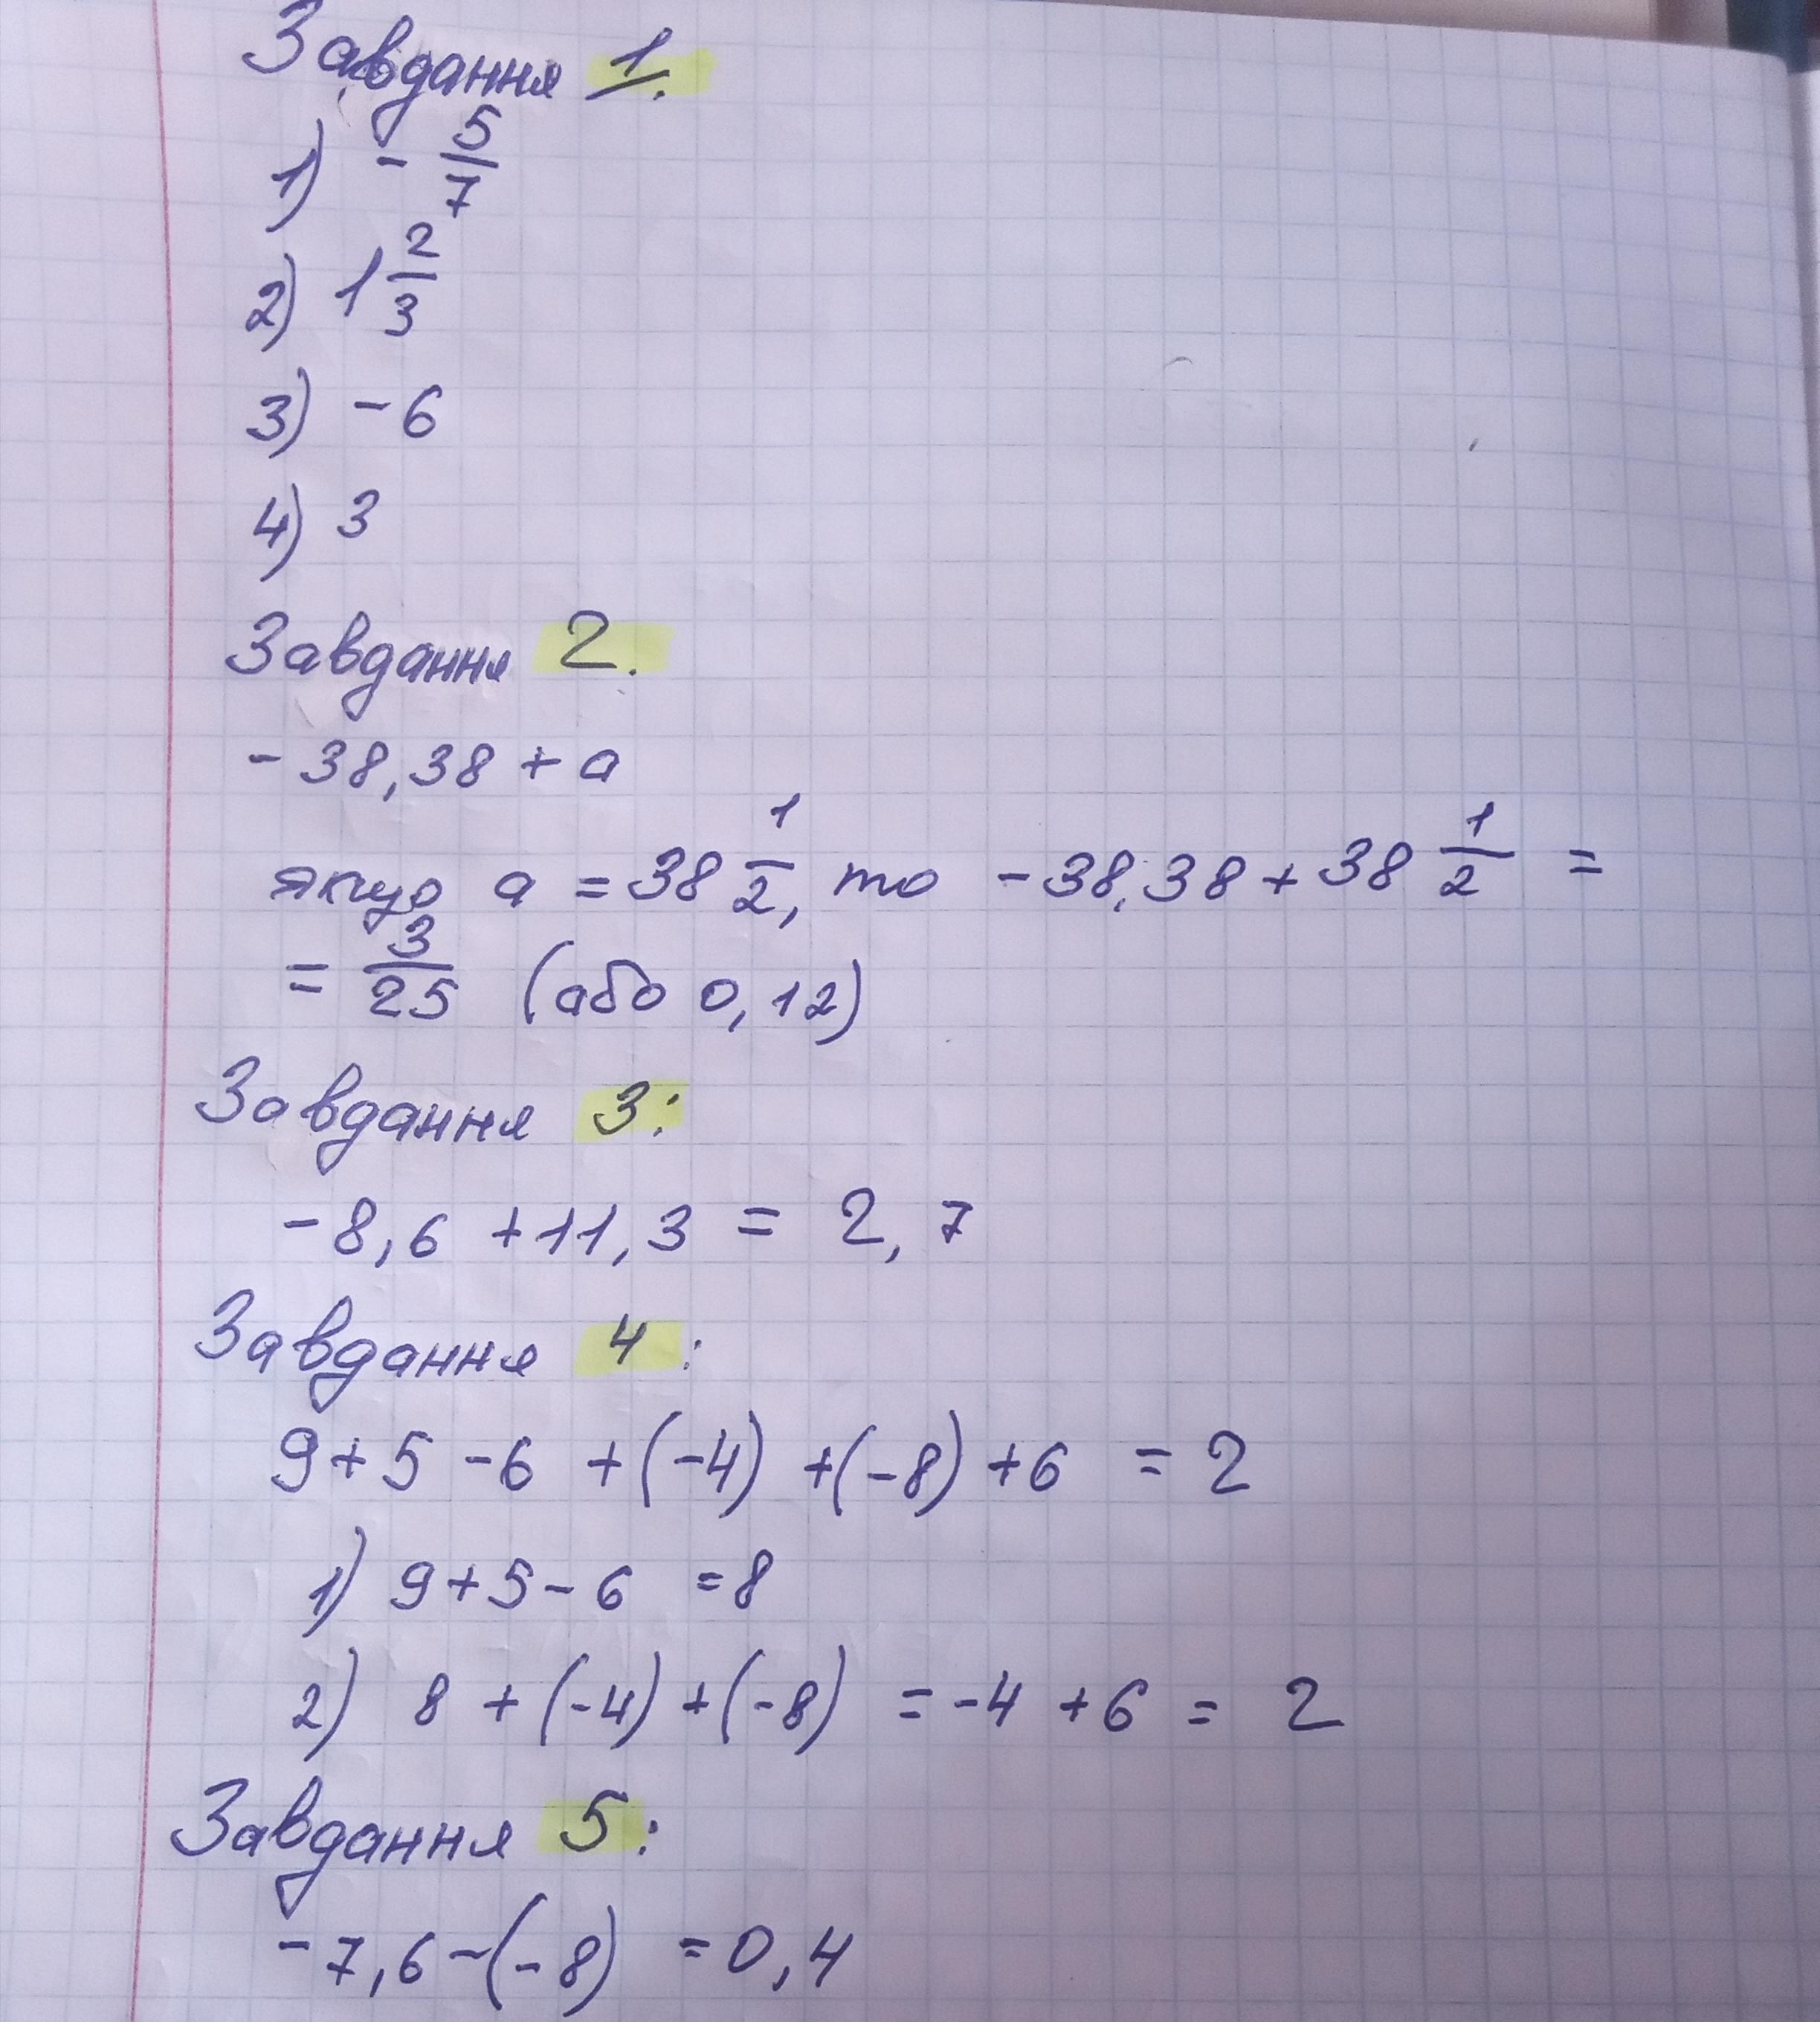 Завдання 1.
1) - 5/7
2) 1 2/3
3) - 6
4) 3
Завдання 2.
- 38,38 + а
якщо а = 38 1/2, то - 38,38 + 38 1/2 =
= 3/25 (або 0,12)
Завдання 3:
- 8,6 + 11,3 = 2,7
Завдання 4:
9 + 5 - 6 + (-4) + (-8) + 6 = 2
1) 9 + 5 - 6 = 8
2) 8 + (-4) + (-8) = -4 + 6 = 2
Завдання 5:
- 7,6 - (-8) = 0,4